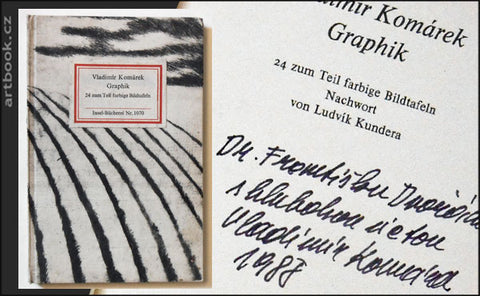 artbook.cz
Vladimír Komárek
Graphik
24 zum Teil farbige Bildtafeln
Insel-Bücherei Nr. 1070
Vladimír Komárek
Graphik
24 zum Teil farbige Bildtafeln
Nachwort
von Ludvík Kundera
Dr. Františku Dvořák
s hlubokou úctou
Vladimír Komárek
1988